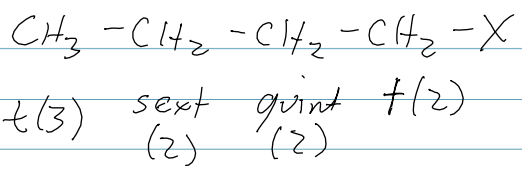 CH3 - CH2 - CH2 - CH2 - X
t(3) sext quint t(2)
(2) (2)